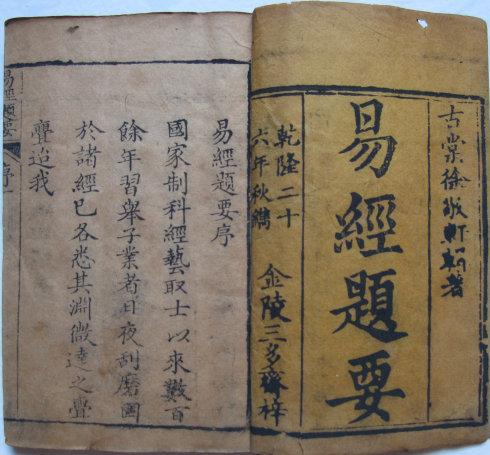 古棠徐敬軒輯著
易經題要
乾隆二十
六年秋鐫
金陵三多齋梓
易經題要序
國家制科經藝取士以來數百
餘年習舉子業者日夜刮磨固
於諸經已各悉其淵微達之亹
亹迨我
易經題要
序
一